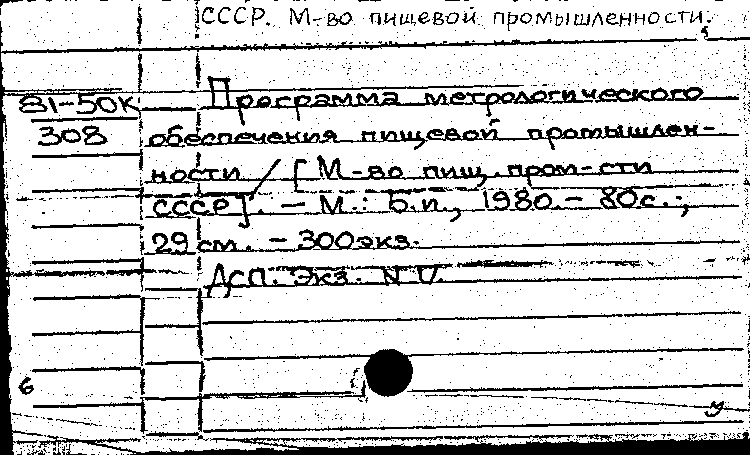 СССР. М-во пищевой промышленности.
81-50К
308
Программа метрологического
обеспечения пищевой промышлен-
ности / [М-во пищ. пром-сти
СССР]. – М.: Б.и., 1980. – 80с.;
29 см. – 300экз.
Дсп. Экз. N
6